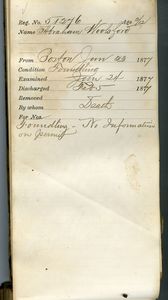 Reg. No. 51276
Name Abraham Woolsford
From Boston Jan 23 1877
Condition Foundling
Examined Jan 24 1877
Discharged Feb 5 1877
Removed
By whom Death
For Nos.
Foundling - No Information
on permit